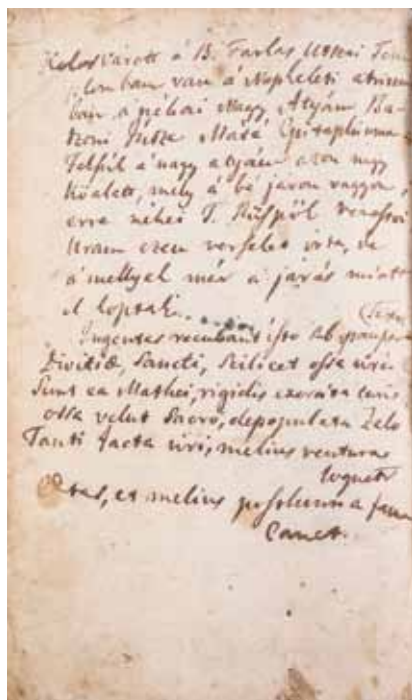 Kolosvárott á B. Farkas Utzai Tem
lomban van á Napkeleti
ban a néhai Nagy Atyám Ba-
tzoni Intze Máté Epitaphiuma
Felfül á nagy atyám azon nagy
kő alatt, mely á bé járon vagyon,
erre néhai T. Püspök
Uram ezen verseket irta, de
á mellyek már a járás miatt
el koptak.
Ingentes recubant isto sub paupere
Divitiæ, Sancti, scilicet ossa viri
Sunt ea Mathei, rigidis exercita curis
ossa velut Sacro, depopulata Zelo
Tanti facta viri, melius ventura
loquetur
Ætas, et melius posthuma fama
Canet.